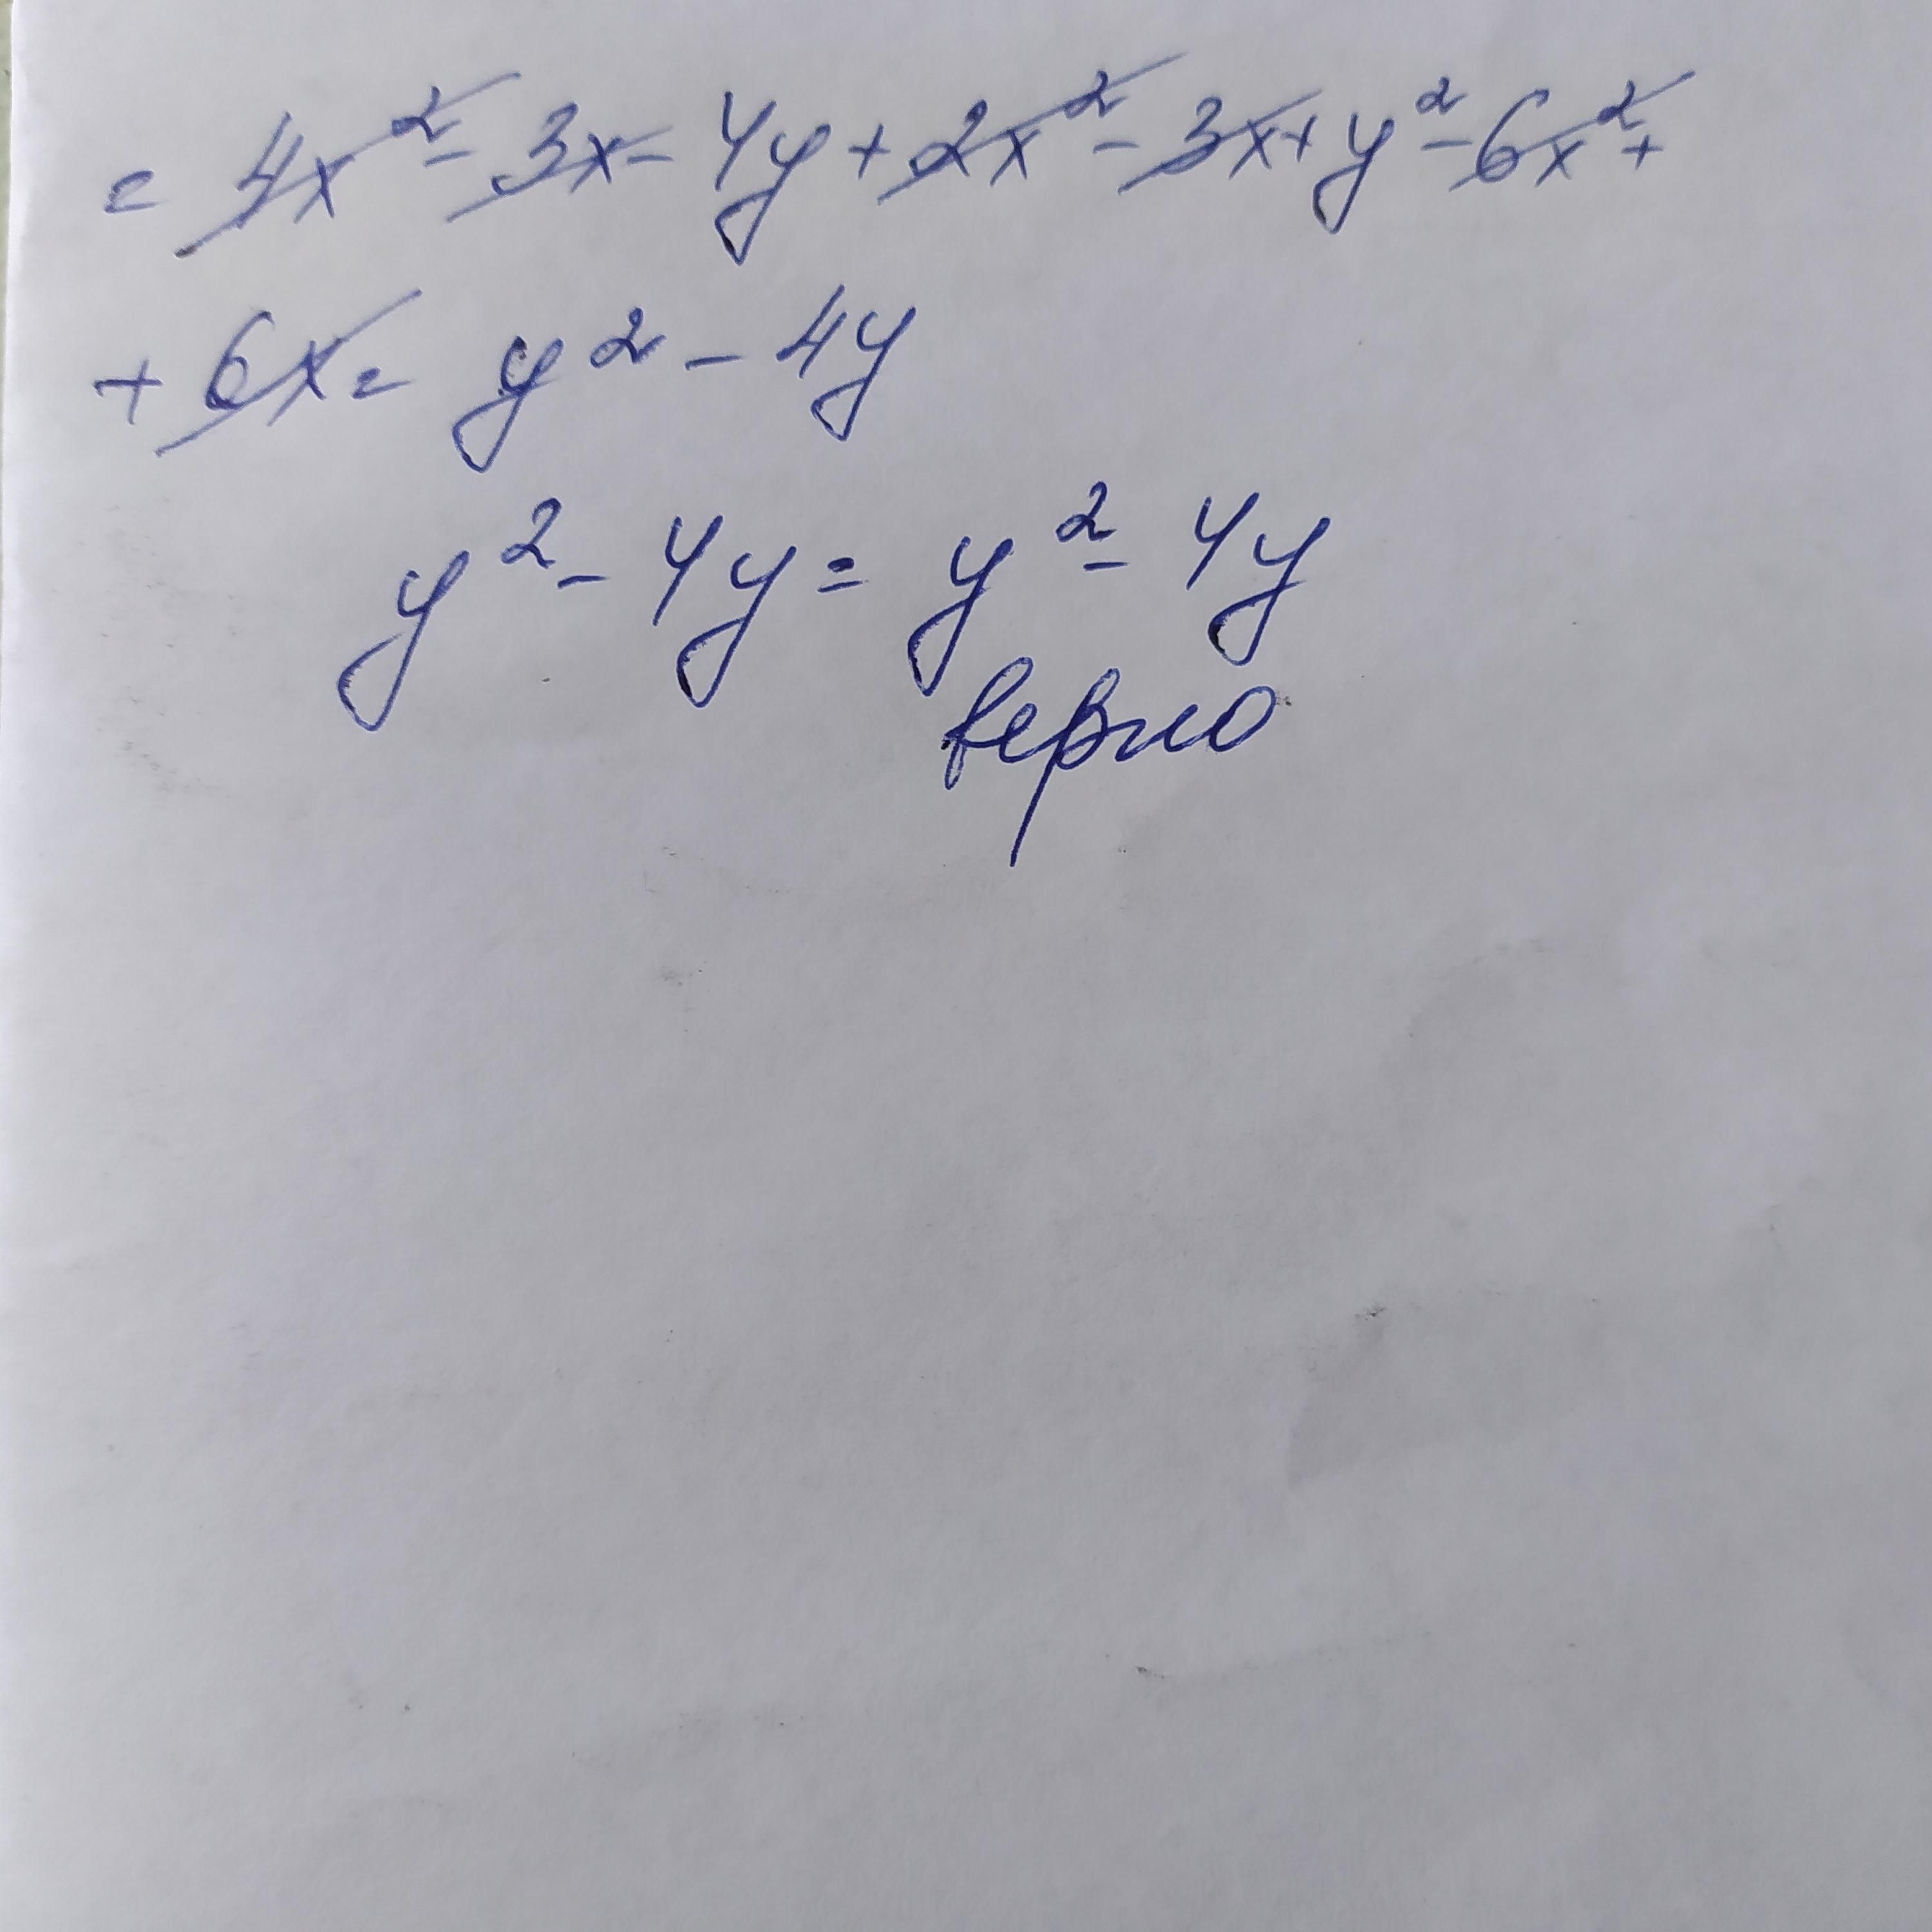 = 4x² - 3x - 4y + 2x² - 3x + y² - 6x² +
+ 6x = y² - 4y
y² - 4y = y² - 4y
верно